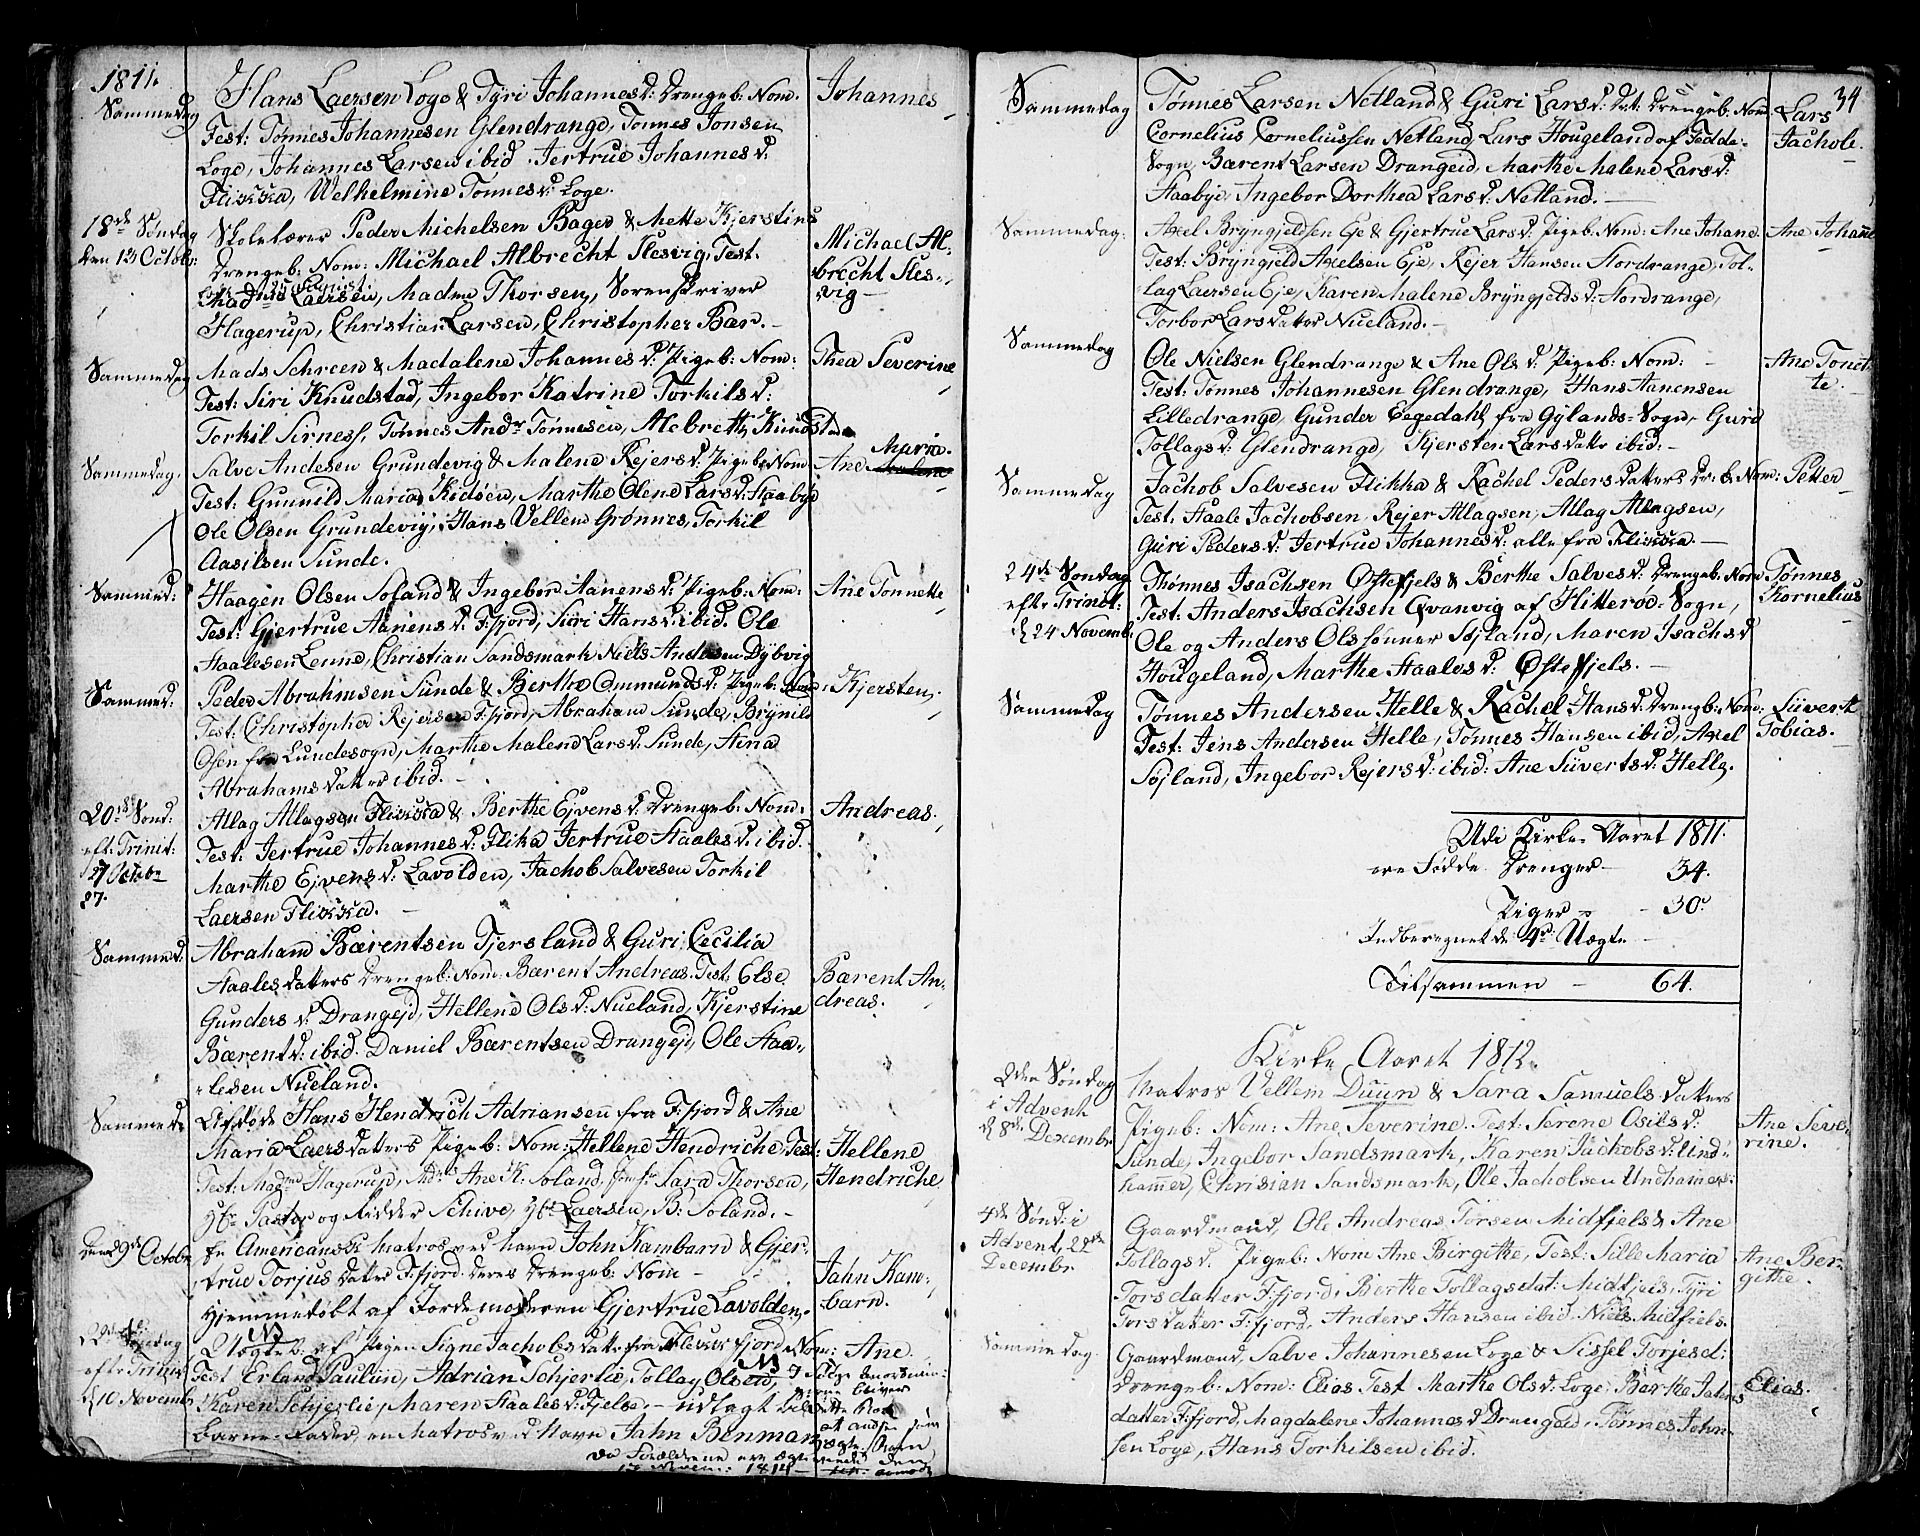 1811.
Sammedag
Hans Laersen Loge & Tyri Johannesd: Drengeb: Nom.
Johannes
Test: Tønnes Johannesen Glendrange, Tonnes Jonsen
Loge, Johannes Larsen ibid. Jertrue Johannesd:
Flikka, Welhelmine Tønnesd: Loge.
18de Søndag
den 13 Octobr:
Skolelærer Peder Michelsen Bager & Mette Kjerstine
Drengeb: Nom: Michael Albrecht Slesvig, Test.
Michael Al-
brecht Sles-
vig
Laersen, Madme Thorsen, Sorenskriver
Hagerup, Christian Larsen, Christopher Bær.
Sammedag
Mads Schreen & Madalene Johannesd: Pigeb: Nom:
Thea Severine
Test: Siri Knudstad, Ingebor Katrine Torkilsd:
Torkil Sirness, Tønnes Andr Tønnesen, Alebrett Knudstad
Sammedag.
Salve Andesen Grundevig & Malene Rejersd: Pigeb: Nom
Ane Maria
Test: Gunnild Maria Kidøen, Marthe Olene Larsd: Haabye
Ole Olsen Grundevig, Hans Vellem Grønnes, Torkil
Aasilsen Sunde.
Sammed:
Haagen Olsen Soland & Ingebor Aanensd: Pigeb: Nom:
Ane Tonnette
Test: Gjertrue Aanensd. F:fjord, Siri Hansd: ibid. Ole
Haalesen Lenne, Christian Sandsmark Niels Andersen Dybvig
Sammed:
Peder Abrahmsen Sunde & Berthe Ommundsd: Pigeb: Nom:
Kjersten.
Test: Christopher Rejersen F:fjord, Abraham Sunde, Brynild
Osen fra Lundesogn, Marthe Malene Larsd: Sunde, Stina
Abrahamsdatter ibid.
20de Sønd:
eft: Trinit:
27 Octobr
27.
Atlag Atlagsen Flikka & Berthe Ejvensd: Drengeb: Nom:
Andreas.
Test: Jertrue Johannesd: Flika Jertrue Haalesd: ibid.
Marthe Ejvensd: Lavolden, Jachob Salvesen Torkil
Laersen Flikka.
Sammed.
Abraham Bærentsen Tjersland & Guri Cecilia
Haalesdatters Drengeb: Nom: Bærent Andreas. Test: Else
Bærent An-
dreas.
Gundersd: Drangejd, Hellene Olsd: Nueland, Kjerstine
Bærentd: ibid. Daniel Bærentsen Drangejd, Ole Haa-
lesen Nueland.
Sammed:
Afdøde Hans Hendrich Adriansen fra F:fjord & Ane
Maria Laersdatters Pigeb: Nom: Hellene Hendriche, Test:
Hellene
Hendriche
Test: Madme Hagerup, Ane K: Soland, Sara Thorsen,
Hr Pastor og Ridder Schive, Hr Laersen, B: Soland.
Den 9de Octobr
En Americansk Matros ved Navn John Kambarn & Gjer-
true Torjusdatter F:fjord deres Drengeb: Nom
Jahn Kam-
barn.
Hjemmedøbt af Jordemoderen Gjertrue Lavolden.
22de Søndag
efter Trinit:
d 10 Novemb
Uægteb: af Pigen Signe Jachobsdatr fra Flekkefjord Nom:
Ane.
Test Erland Paulun, Adrian Schjerlie, Tollag Olsen,
Karen Schjerlie, Maren Haalesd: Fjelse. - udlagt til
Barne-Fader, en Matros ved Navn Jahn Benman
da Forældrene ere
Novem: 1814
34
Sammedag
Tønnes Larsen Netland & Guri Larsd: Dat: Drengeb: Nom
Lars
Jachole.
Cornelius Corneliussen Netland, Lars Hougeland of Fedde-
Sogn, Bærent Larsen Drangeid, Marthe Malene Larsd:
Haabye, Ingebor Dorthea Larsd: Netland.
Sammedag.
Axel Bryngjeldsen Eje & Gjertrue Larsd. Pigeb: Nom: Ane Johane
Ane Johane
Test: Bryngield Axelsen Eje, Rejer Hansen Stordrange, Tol-
lag Laersen Eje, Karen Malene Bryngjeldsd: Stordrange,
Torbor Larsdatter Nueland.
Sammedag
Ole Nielsen Glendrange & Ane Olsd: Pigeb: Nom:
Ane Tonet-
te.
Test: Tønnes Johannesen Glendrange, Hans Aanensen
Lilledrange, Gunder Eegedahl fra Gylands-Sogn, Guro
Tollagsd: Glendrange, Kjersten Larsdatr ibid:
Sammedag
Jachob Salvesen Flikka & Rachel Pedersdatters Dr: b: Nom:
Petter
Test: Haale Jachobsen, Rejer Atlagsen, Atlag Atlagsen,
Guri Pedersd: Jertrue Johannesd: alle fra Flikka.
24de Søndag
eftr Trinit:
d 24 Novemb:
Thønnes Isachsen Østefjels & Berthe Salvesd: Drengeb: Nom
Tønnes
Kornelius
Test: Anders Isachsen Qvanvig af Hitterøe-Sogn,
Ole og Anders Olssønner Søjland, Maren Isachsd
Hougeland, Marthe Haalesd: Østefjels.
Sammedag
Tønnes Andersen Helle & Rachel Hansd: Drengb: Nom:
Siivert
Tobias.
Test: Jens Andersen Helle, Tønnes Hansen ibid, Axel
Søjland, Ingebor Rejersd: ibid: Ane Siivertsd: Helle.
Udi Kirke-Aaret 1811.
ere Fødde Drenger 34.
Piger 30
Indberegnet de 4 Uægte
Tilsammen - 64.
Kirke Aaret 1812.
2den Søndag
i Advent
d 8de Decembr
Matros Vellem Duun & Sara Samuelsdatters
Pigeb: Nom: Ane Severine. Test: Serene Osilsd:
Ane Seve-
rine.
Sunde, Ingebor Sandsmark, Karen Jachobsd: Lind-
hammer, Chrisian Sandsmark, Ole Jacholsen Undhamer:
4de Sønd: i
Advent, 22de
Decembr
Gaardmand, Ole Andreas Torsen Midfjels & Ane
Tollagsd. Pigeb: Nom Ane Birgithe, Test: Sille Maria
Ane Ber-
githe.
Torsdatter F:fjord, Berthe Tollagsdat: Midfjels, Tyri
Torsdatter F:fjord. Anders Hansen ibid. Niels Midfiels.
Sammedag.
Gaardmand, Salve Johannesen Loge & Sissel Torjesd:
Drengeb: Nom: Elias Test Marthe Olsd: Loge, Berthe Jahns
Elias.
datter F:fjord, Magdalene Johannesd Drangeid, Tønnes John-
sen Loge, Hans Torkilsen ibid.